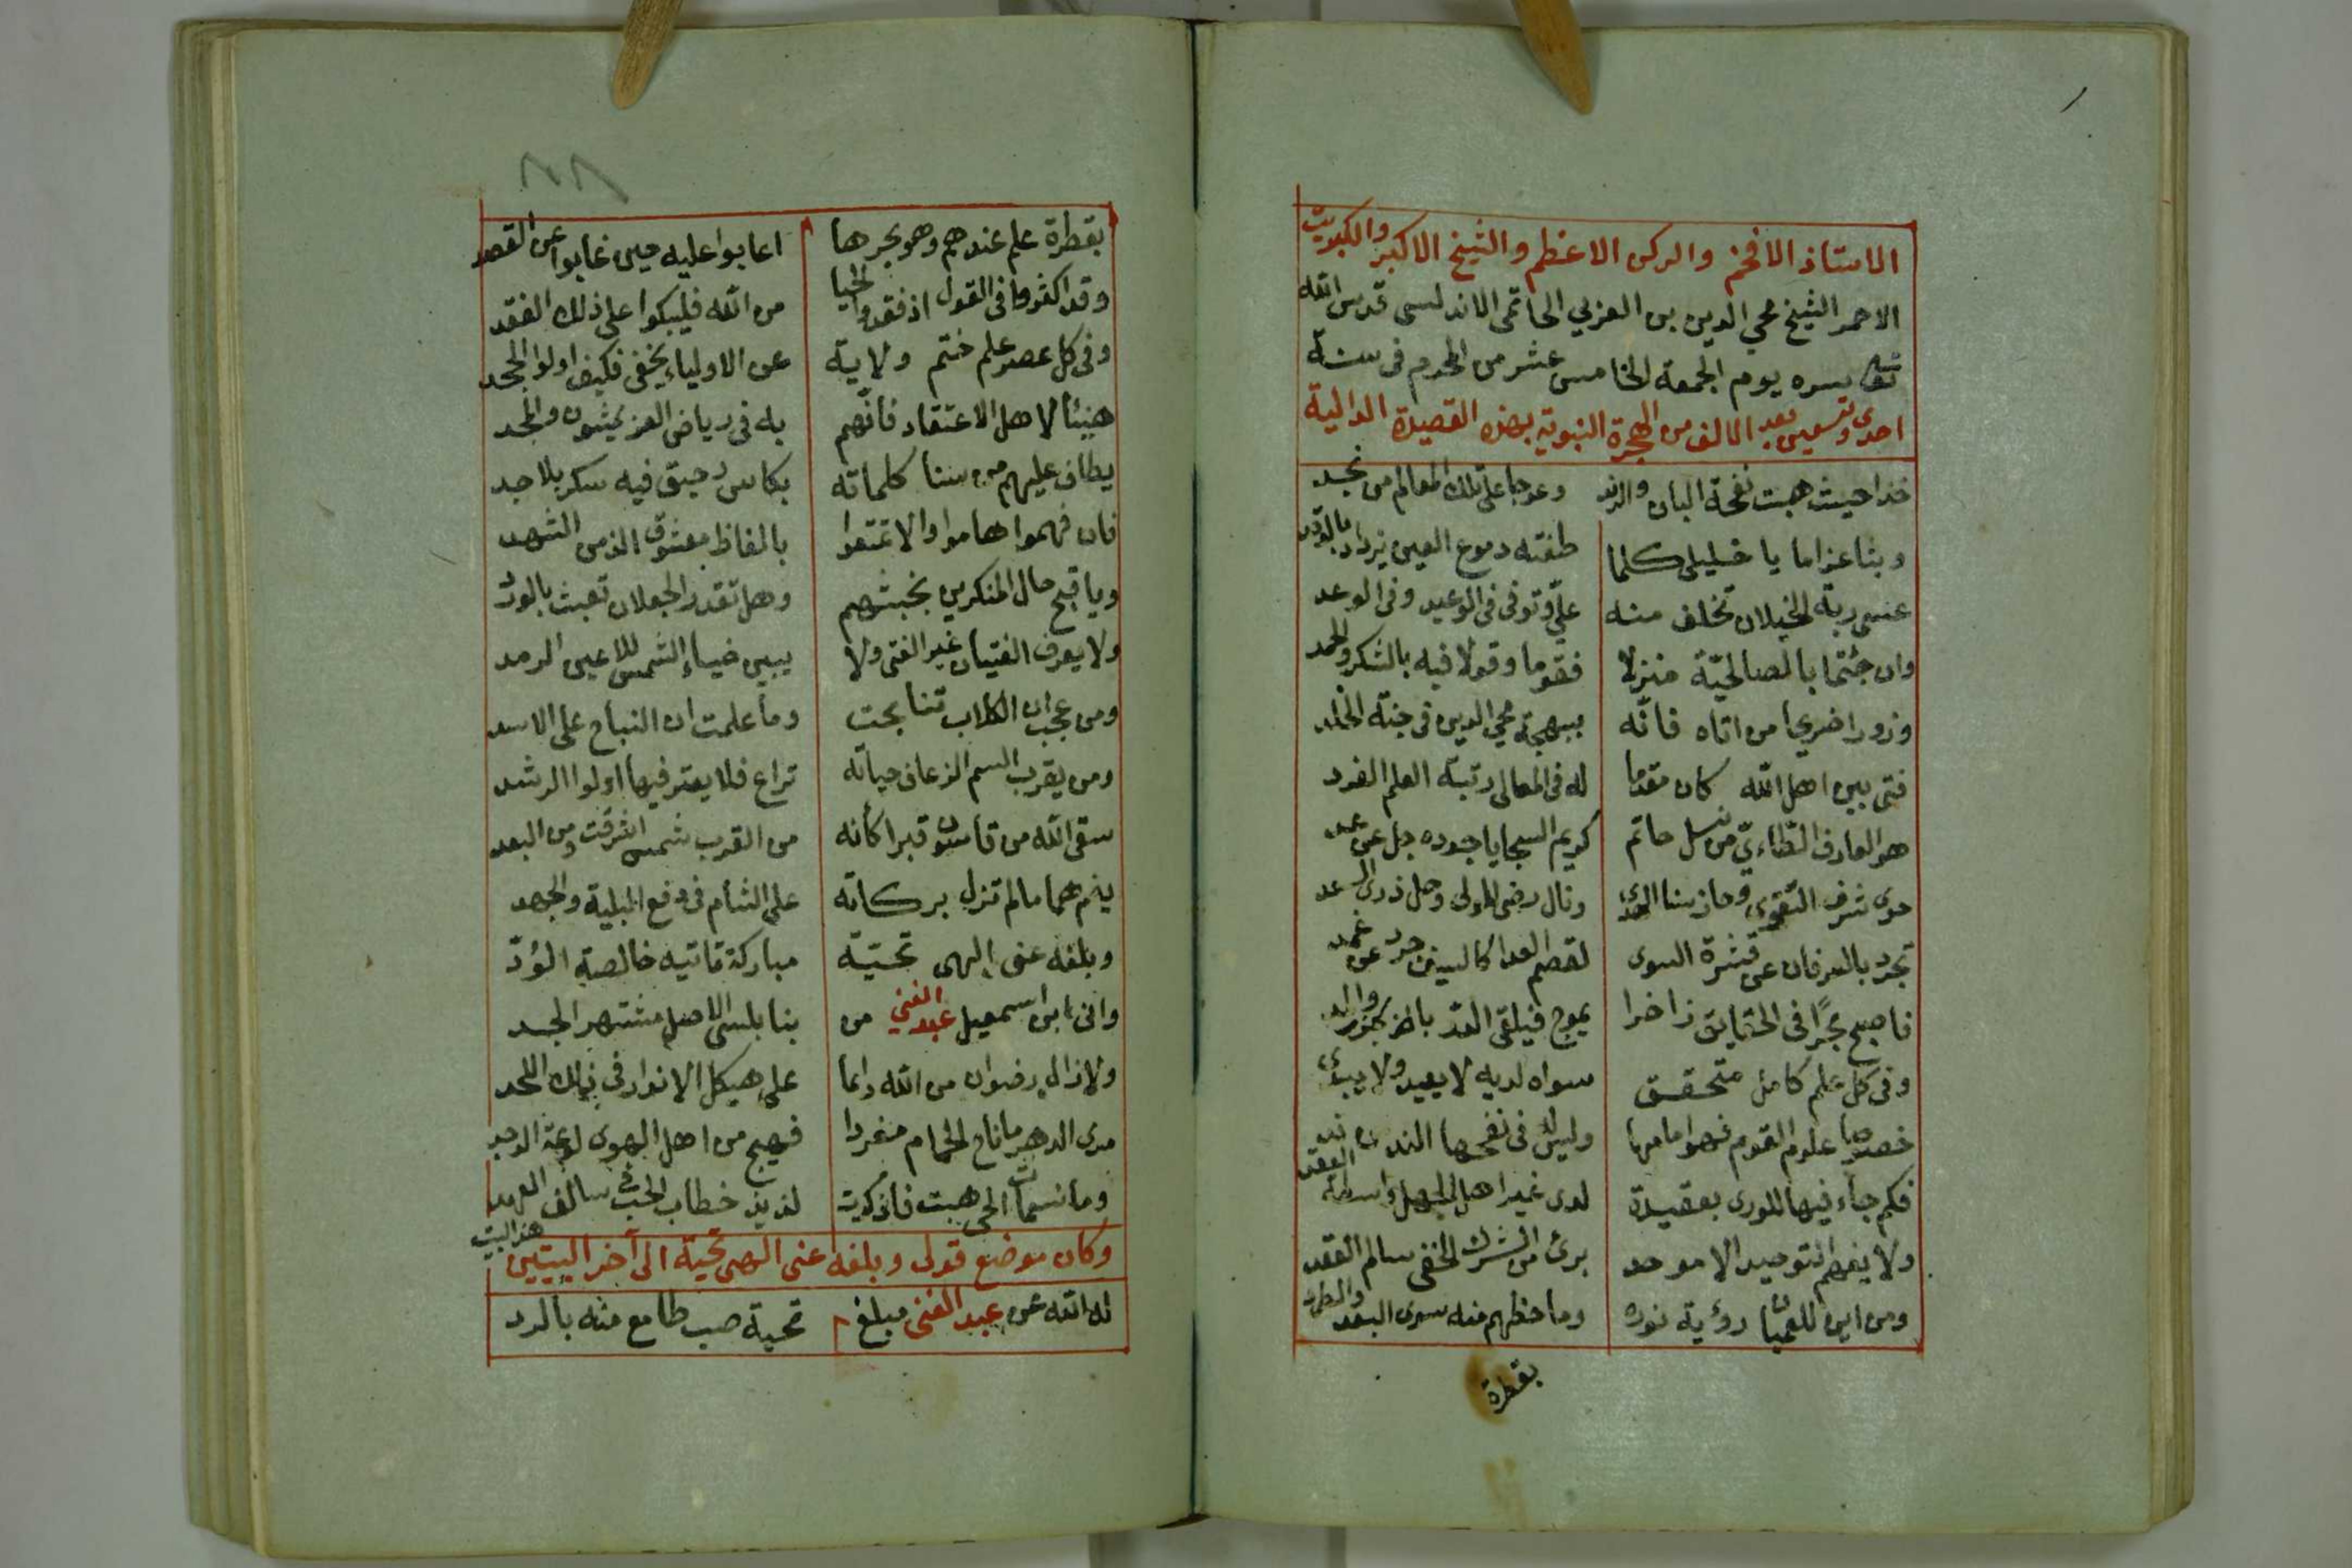 الاستاذ الافخم والركن الاعظم والشيخ الاكبر والكبريت
الاحمر الشيخ محي الدين بن العربي الحاتمي الاندلسي قدس الله
تعالى سره يوم الجمعة الخامس عشر من المحرم في سنة
احدى وتسعين بعد الالف من الهجرة النبوية بهذه القصيدة الدالية
خذا حيث هبت نفحة البان والرند وعوجا على تلك المعالم من نجد
وبثا غراما يا خليلي كلما طفته دموع العين يزداد بالوقد
عسى ربة الخيلان تخلف منه عليّ وتوفى في الوعيد وفي الوعد
وان جئتما بالصالحيّة منزلا فقوما وقولا فيه بالشكر والحمد
وزورا ضريحا من اتاه فانّه ببهجة محي الدين في جنة الخلد
فتى بين اهل الله كان مقدما له في المعالي رتبة العلم الفرد
هو العارف الطاءي من نسل حاتم كريم السجايا جوده جل عن عد
حوى شرف التقوى وحاز سنا الهدى ونال رضى المولى وحل ذرى السعد
تجرد بالعرفان عن قشرة السوى لقصم العدا كالسيف جرد عن غمد
فاصبح بحرًا في الحقايق زاخرا يموج فيلقى الدر بالجزر والمد
وفي كل علم كامل متحقق سواه لديه لا يعيد ولا يبدى
خصوصا علوم القوم فهو امامها وليس له في نفحها الند من ند
فكم جاء فيها للورى بعقيدة لدى غير اهل الجهل واسطة العقد
ولا يفهم التوحيد الا موحد برئ من الشرك الخفي سالم العقد
ومن اين للعميان رؤية نوره وما حظهم منه سوى البعد والطرد
بقطرة
٨٨
بقطرة علم عندهم وهو بحرها اعابوا عليه حين غابوا عن القصد
وقد اكثروا في القول اذ فقدوا الحيا من الله فليبكوا على ذلك الفقد
وفي كل عصر علم ختم ولاية عن الاولياء يخفى فكيف اولوا الجحد
هنيئا لاهل الاعتقاد فانّهم به في رياض العز يمشون والمجد
يطاف عليهم من سنا كلماته بكاس رحيق فيه سكر بلا حد
فان فهموا هاموا والا تمتعوا بالفاظ معشوق الذ من الشهد
ويا قبح حال المنكرين بخبثهم وهل تقدر الجعلان تعبث بالورد
ولا يعرف الفتيان غير الفتى ولا يبين ضياء الشمس للاعين الرمد
ومن عجب ان الكلاب تنابحت وما علمت ان النباح على الاسد
ومن يقرب السم الزعاف حياته تراع فلا يعتر فيها اولوا الرشد
سقى الله من قاسيون قبرا كأنه من القرب شمس اشرقت ومن البعد
ينم هما مالم تزل بركاته على الشأم في دفع البلية والجهد
وبلغه عني إلهي تحيّة مباركة تاتيه خالصة الودّ
واني ابن اسمعيل عبد الغني من بنابلسي الاصل مشتهر الجد
ولا زال رضوان من الله دائما على هيكل الانوار في ذلك اللحد
مدى الدهر ما ناح الحمام مغردا فهيج من اهل الهوى لوعة الوجد
وما نسمات الحي هبت فاذكرت لذيذ خطاب الحب في سالف العهد
وكان موضع قولي وبلغه عني الهي تحية الى آخر البيتين هذا البيت
له الله عن عبد الغني مبلغ تحية صب طامع منه بالرد